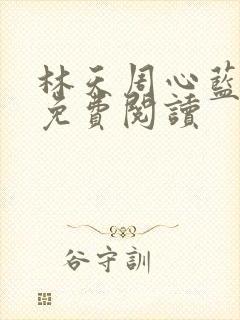 林天周心藍
免費閱讀
谷守訓